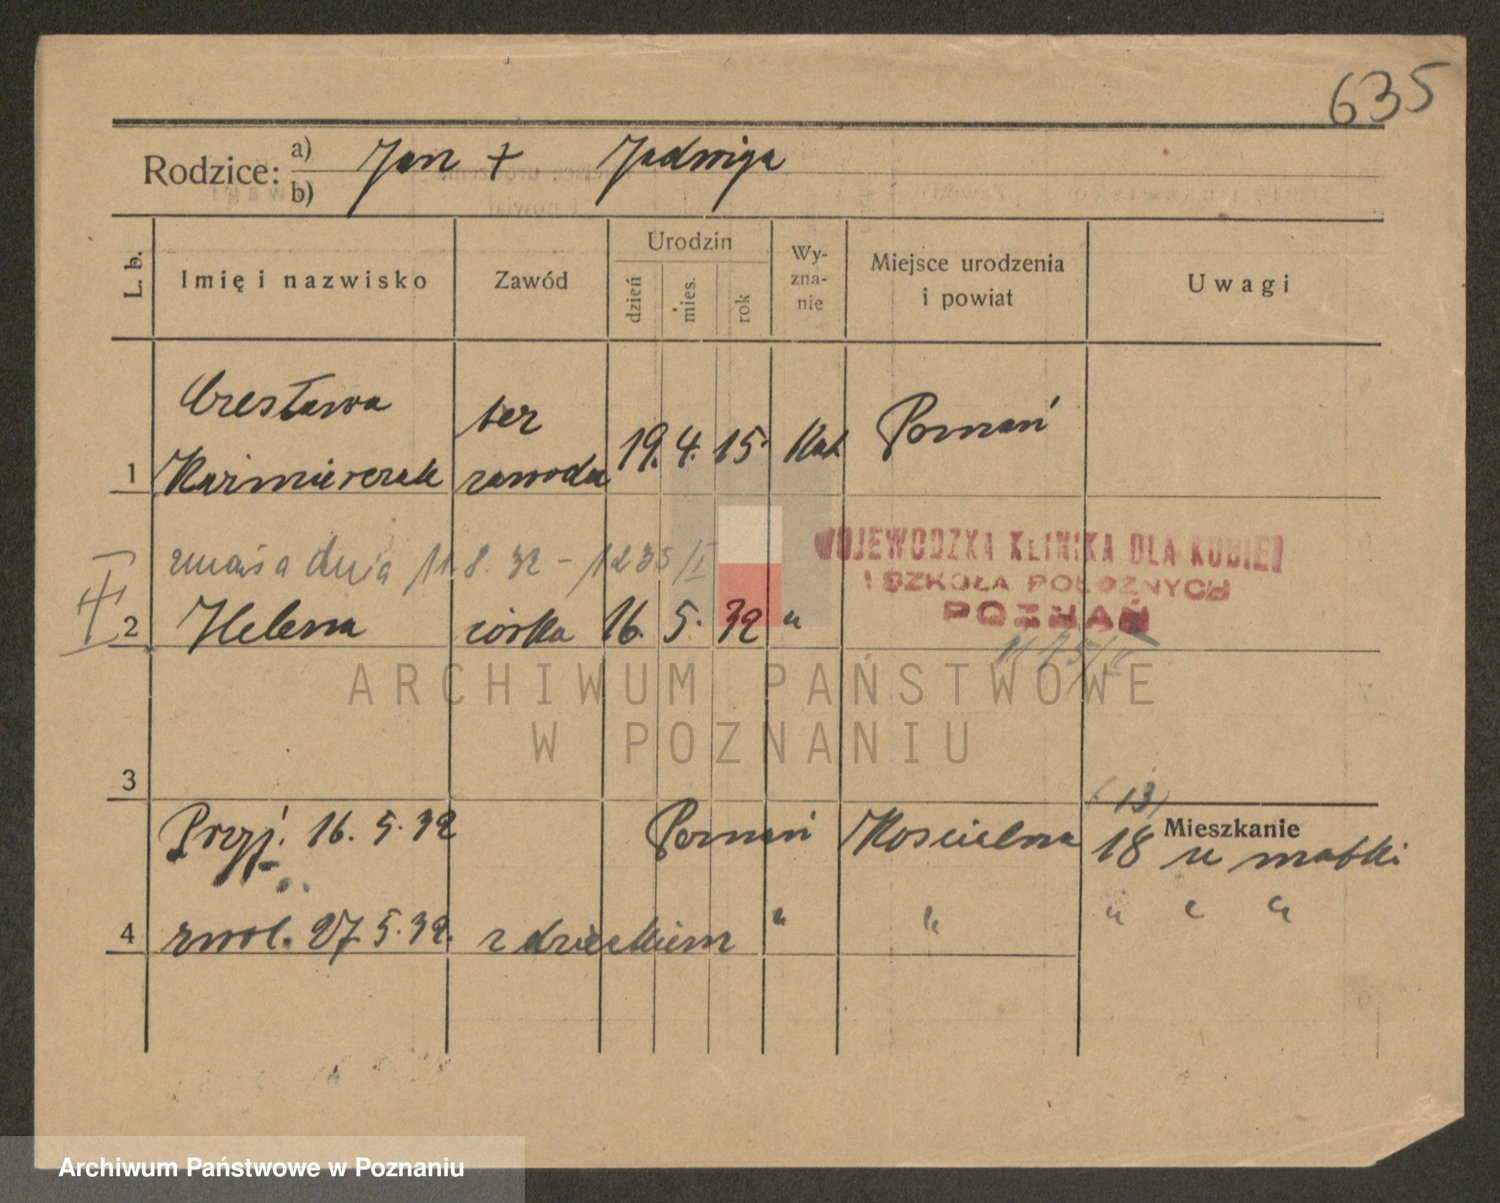 635
Rodzice: a) Jan + Jadwiga
b)
L. b.
Imię i nazwisko
Zawód
Urodzin
dzień
mies.
rok
Wy-
zna-
nie
Miejsce urodzenia
i powiat
Uwagi
Czesława bez
1 Kaźmierczak zawodu 19. 4. 15. kat Poznań
zmarła dnia 11.8.32 - 1235/I
WOJEWÓDZKA KLINIKA DLA KOBIET
I SZKOŁA POŁOŻNYCH
POZNAŃ
2 Helena córka 16. 5. 32 "
ARCHIWUM PAŃSTWOWE
W POZNANIU
3
(13)
Mieszkanie
Przyj. 16. 5. 32 Poznań Kościelna 18 u matki
4 zwol. 27. 5. 32. z dzieckiem " " " " "
Archiwum Państwowe w Poznaniu